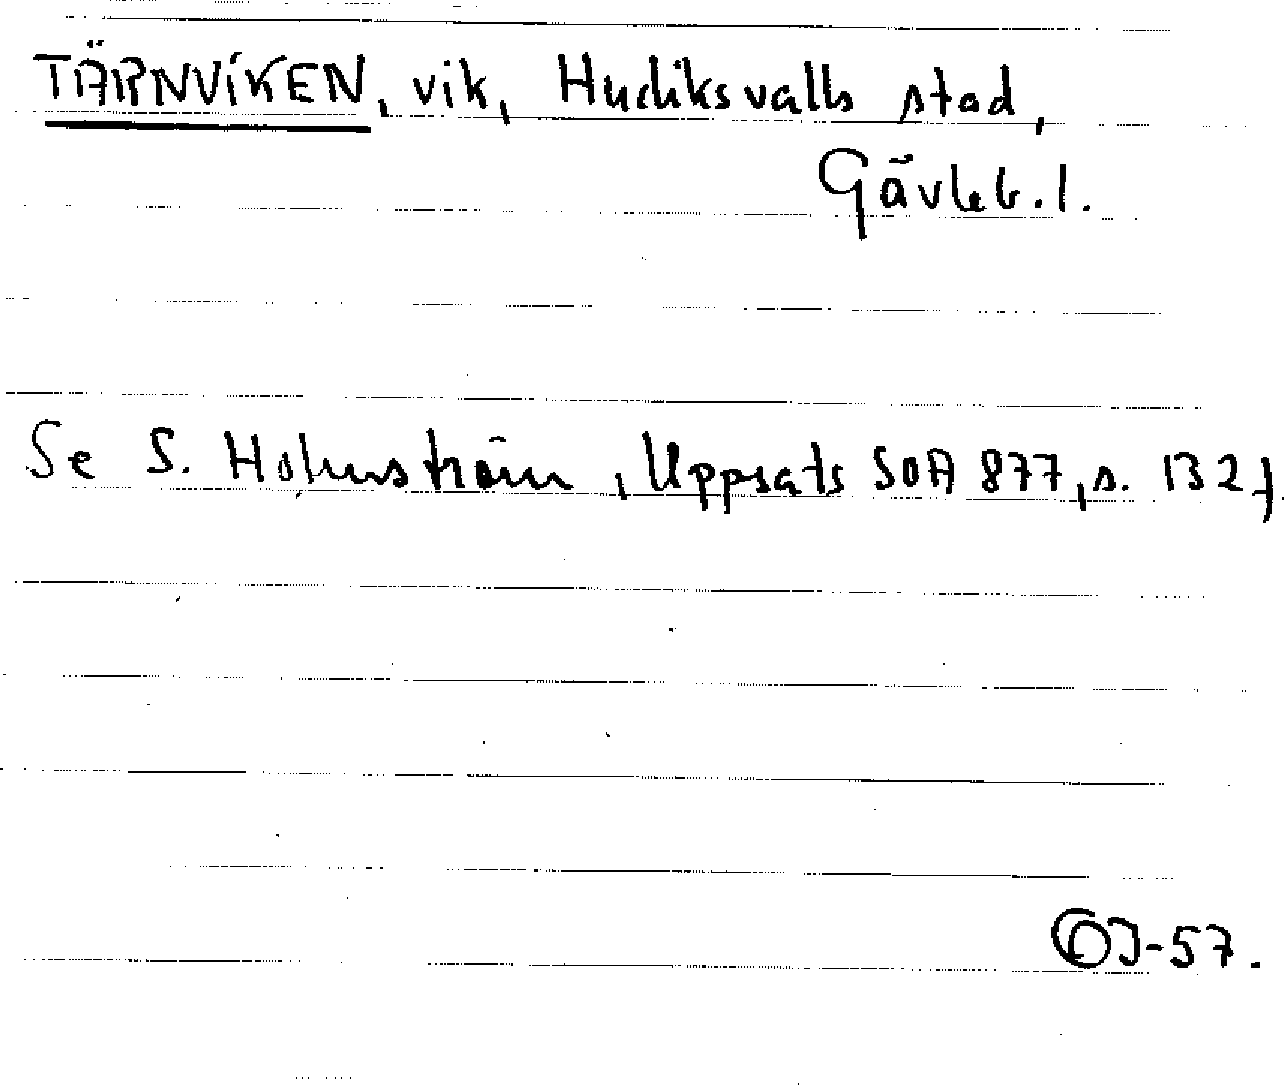 TÄRNVIKEN, vik, Hudiksvalls stad,
Gävleb. l.
Se S. Holmström, Uppsats SOA 877, s. 132 f.
-57.